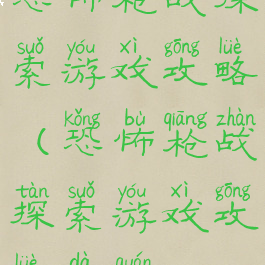 恐怖枪战探
suǒ yóu xì gōng lüè
索游戏攻略
kǒng bù qiāng zhàn
(恐怖枪战
tàn suǒ yóu xì gōng
探索游戏攻
lüè dà quán